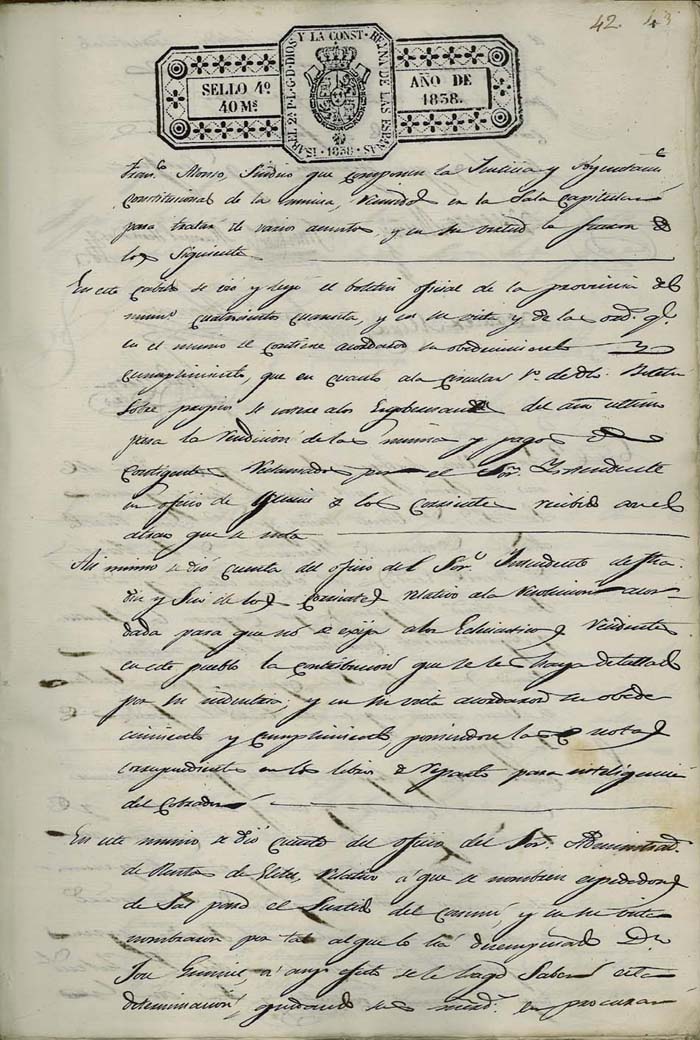 42 43
ISABEL 2ª P.L.G.D.DIOS Y LA CONST. REYNA DE LAS ESPAÑAS
SELLO 4º
40 Mˢ
AÑO DE
1838.
· 1838 ·
Franᶜᵒ Alonso, Sindico que componen la Justicia y Ayuntamᵗᵒ
Constitucional de la misma, reunidos en la Sala Capitular
para tratar de varios asuntos, y en su virtud lo fueron de
los siguiente
En este cabdo se vió y leyó el boletin oficial de la provincia del
numᵒ cuatrocientos cuarenta, y en su vista y de las ordˢ qᵉ
en el mismo se contiene acordaron su obedecimiento y
cumplimiento, que en cuanto a la circular 1ª de dho. Boletin
sobre propios se
para la rendicion de las mismas y pagos de
contigente reclamados por el Sor. Yntendente
en oficio de de los corrientes recibido en el
que se nota
Asi mismo se dió cuenta del oficio del Sor. Yntendente de
diez y seis de los corrientes relativo a la resolucion acor-
dada para que no se exija a los Eclesiasticos residentes
en este pueblo la contribucion que se les haya detallado
por su industria, y en su vista acordaron su obede
cimiento y cumplimiento, poniendose las notas
correspondientes en los libros de reparto para inteligencia
del Cobrador
En este mismo se dió cuenta del oficio del Sor. Administradʳ
de Rentas de Elche, relativo á que se nombren espendedores
de Sal para el surtido del comun, y en su vista
nombraron por tal al que lo há desempeñado Dⁿ
José , á cuyo efecto se le haga saber esta
determinacion, quedando sus mercdˢ en procurar